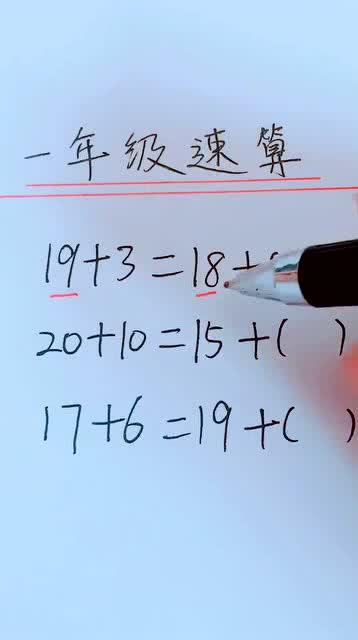 一年级速算
19+3=18+(
20+10=15+( )
17+6=19+( )